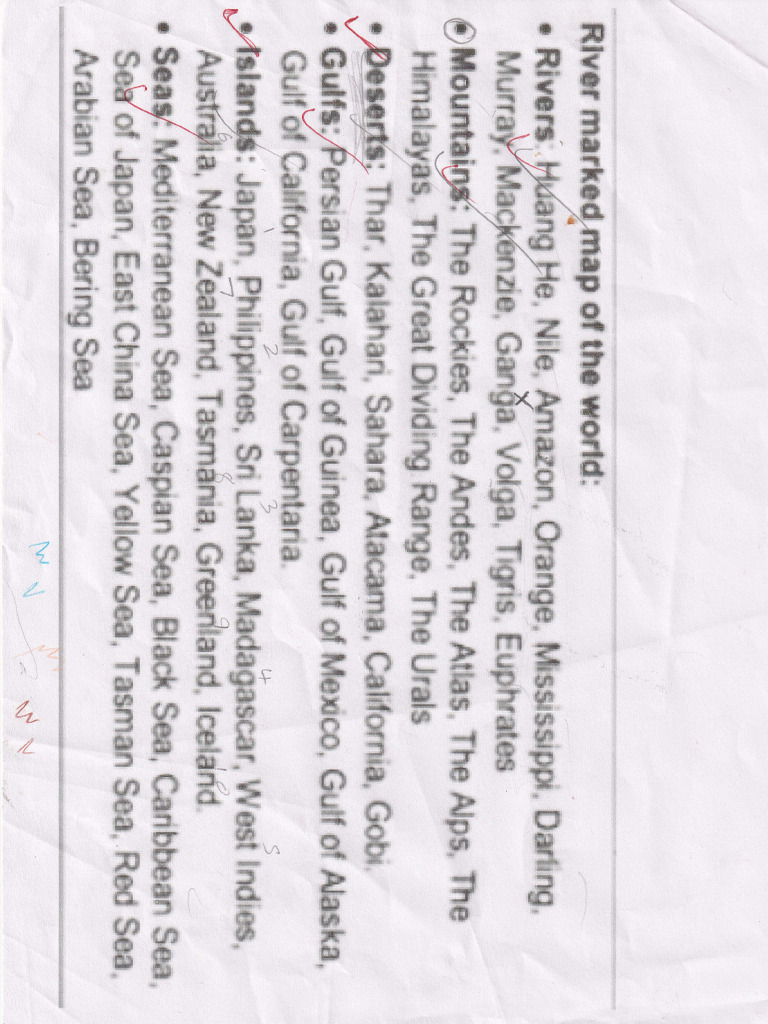 River marked map of the world:
• Rivers: Huang He, Nile, Amazon, Orange, Mississippi, Darling,
Murray, Mackenzie, Ganga, Volga, Tigris, Euphrates
• Mountains: The Rockies, The Andes, The Atlas, The Alps, The
Himalayas, The Great Dividing Range, The Urals
• Deserts: Thar, Kalahari, Sahara, Atacama, California, Gobi.
• Gulfs: Persian Gulf, Gulf of Guinea, Gulf of Mexico, Gulf of Alaska,
Gulf of California, Gulf of Carpentaria.
• Islands: Japan, Philippines, Sri Lanka, Madagascar, West Indies,
1 2 3 4 5
Australia, New Zealand, Tasmania, Greenland, Iceland.
6 7 8 9 10
• Seas: Mediterranean Sea, Caspian Sea, Black Sea, Caribbean Sea,
Sea of Japan, East China Sea, Yellow Sea, Tasman Sea, Red Sea,
Arabian Sea, Bering Sea